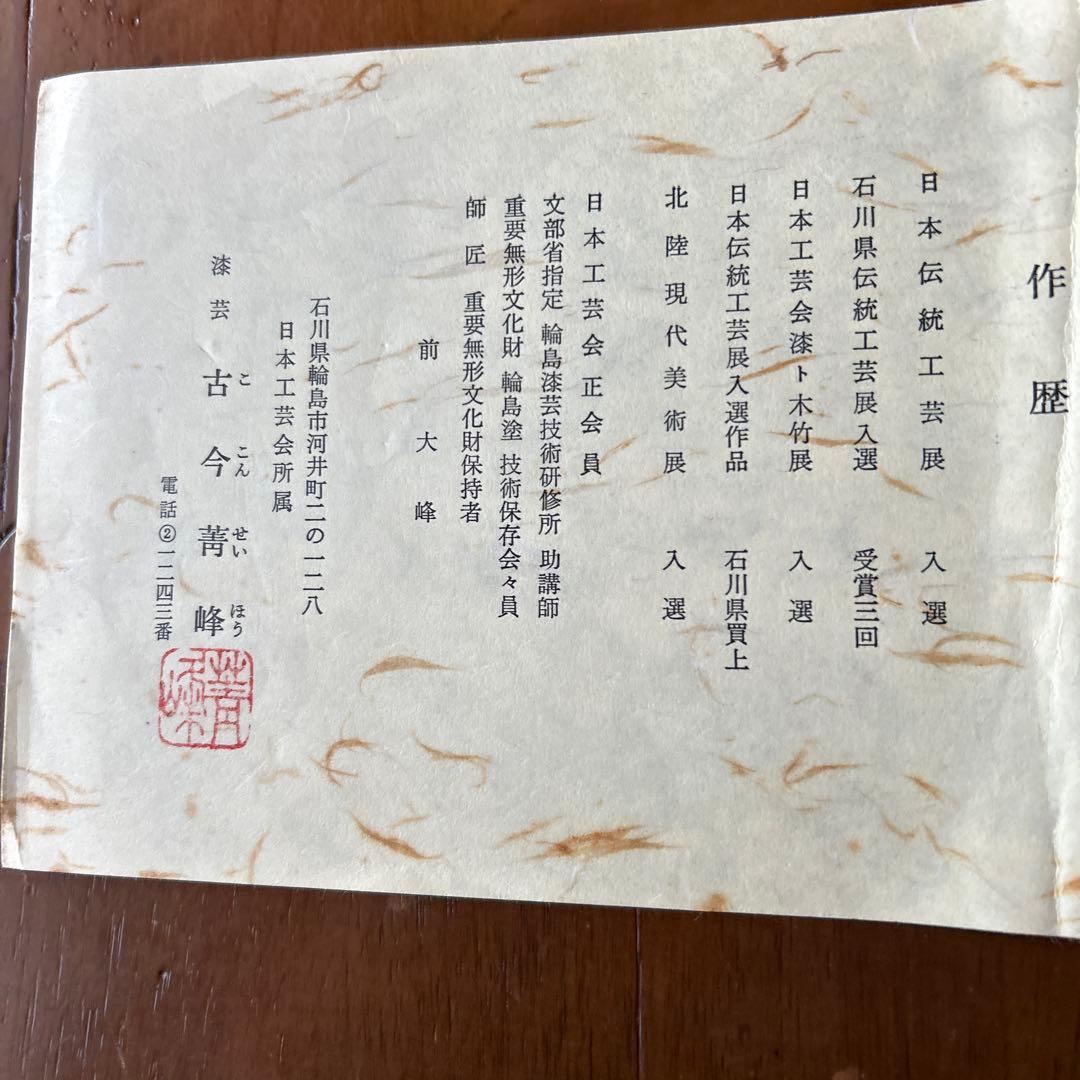 作歴
日本伝統工芸展 入選
石川県伝統工芸展入選 受賞三回
日本工芸会漆ト木竹展 入選
日本伝統工芸展入選作品 石川県買上
北陸現代美術展 入選
日本工芸会正会員
文部省指定 輪島漆芸技術研修所 助講師
重要無形文化財 輪島塗 技術保存会々員
師匠 重要無形文化財保持者
前大峰
石川県輪島市河井町二の一二八
日本工芸会所属
漆芸 古今菁峰
ここんせいほう
電話②一二四三番
菁峰